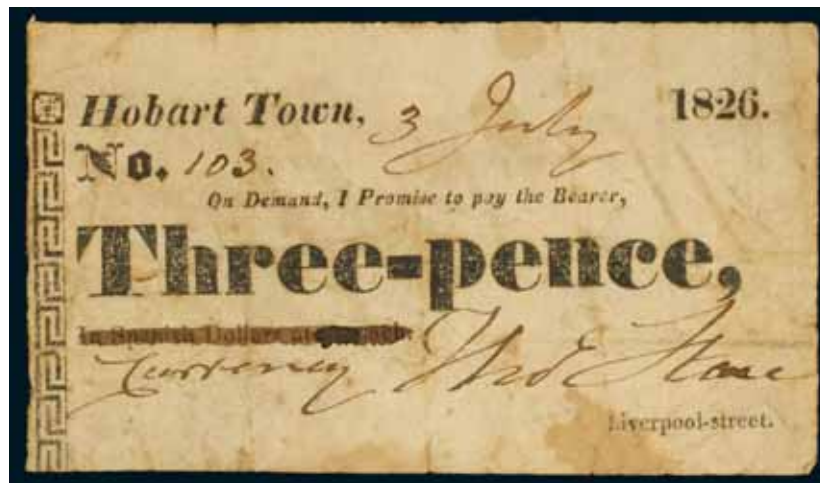 Hobart Town, 3 July 1826.
No. 103.
On Demand, I Promise to pay the Bearer,
Three-pence,
In Spanish Dollars at
Currency Thos Stone
Liverpool-street.